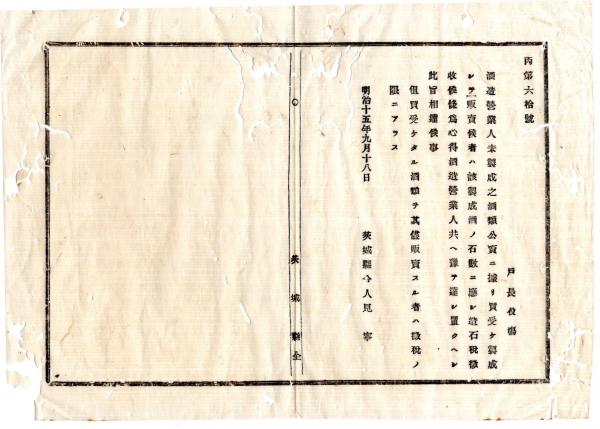 丙第六拾號
戸長役塲
酒造營業人未製成之酒類公賣ニ據リ買受ケ製成
シテ販賣候者ハ該製成酒ノ石數ニ應シ造石税徴
收候條爲心得酒造營業人共ヘ豫テ達シ置クヘシ
此旨相達候事
但買受ケタル酒類ヲ其儘販賣スル者ハ徴税ノ
限ニアラス
明治十五年九月十八日
茨城縣令人見寧
茨城縣